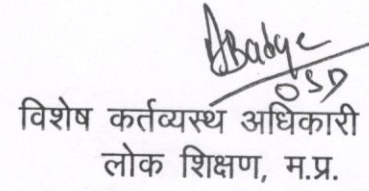 OSD
विशेष कर्तव्यस्थ अधिकारी
लोक शिक्षण, म.प्र.